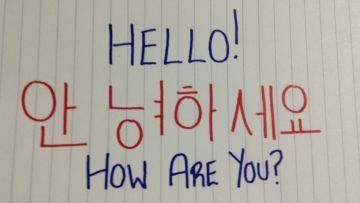 HELLO!
안녕하세요
HOW ARE YOU?